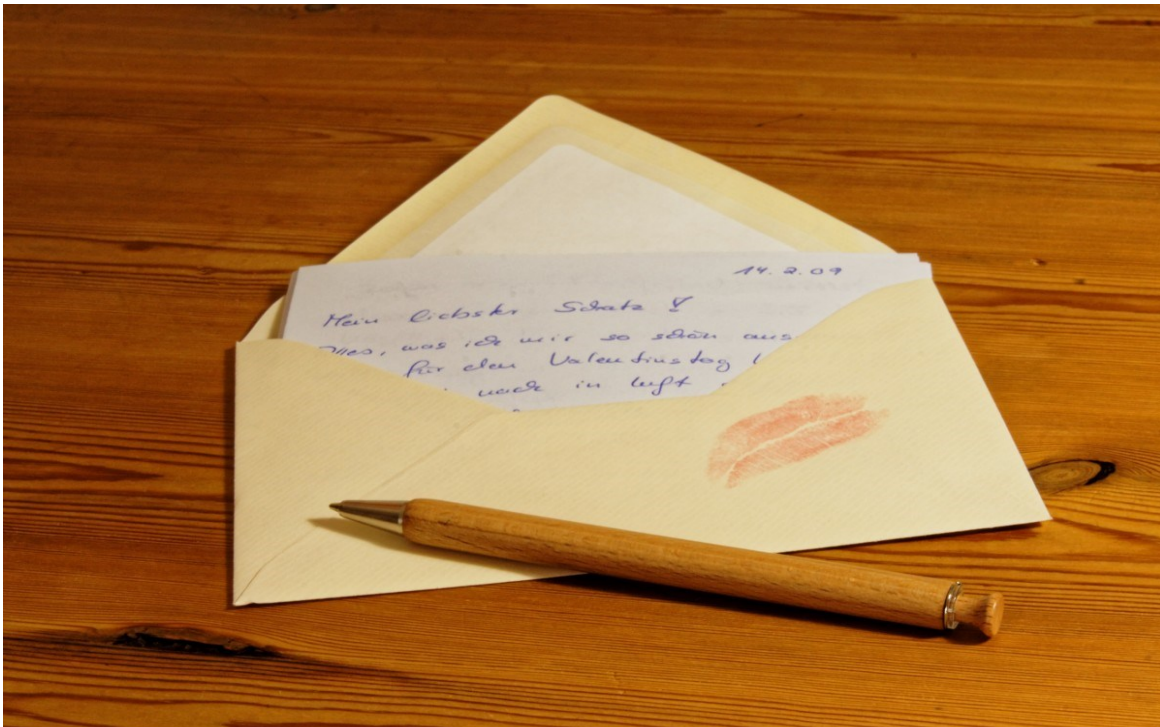 14.2.09
Mein liebster Schatz!
Alles, was ich mir so schön aus
für den Valentinstag
in Luft